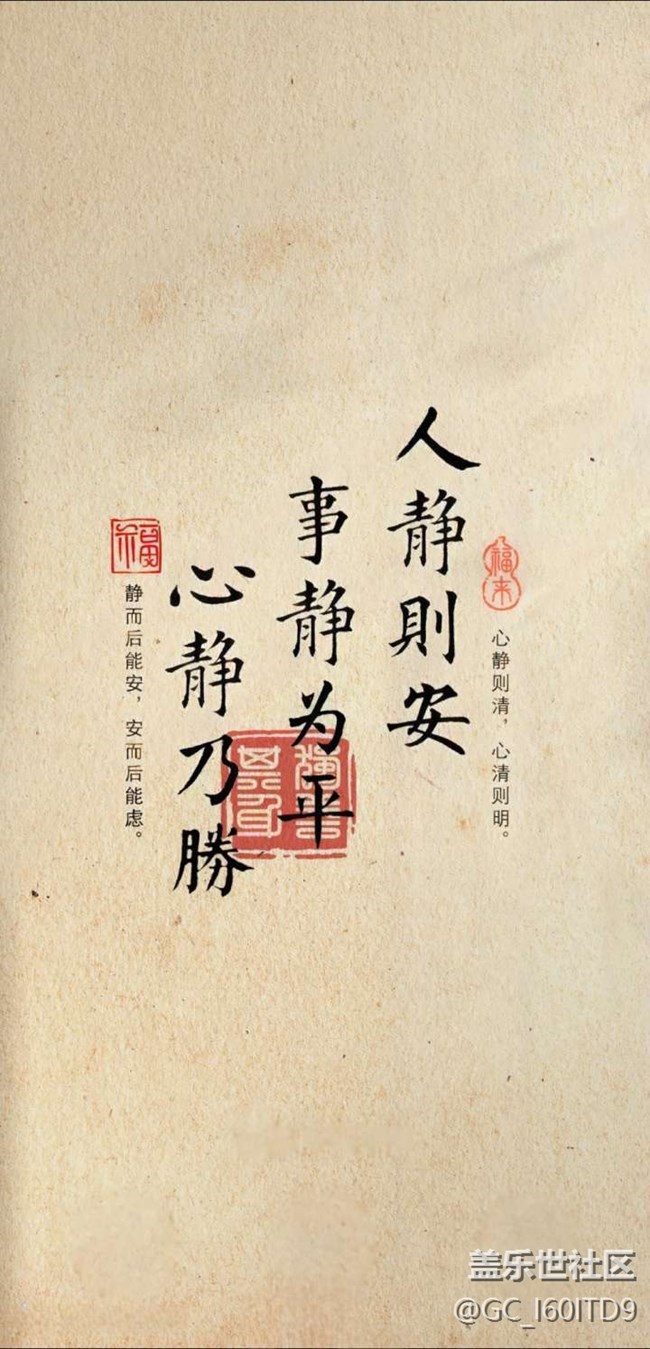 福来
心静则清，心清则明。
人静則安
事静为平
心静乃勝
福
静而后能安，安而后能虑。
盖乐世社区
@GC_I60ITD9